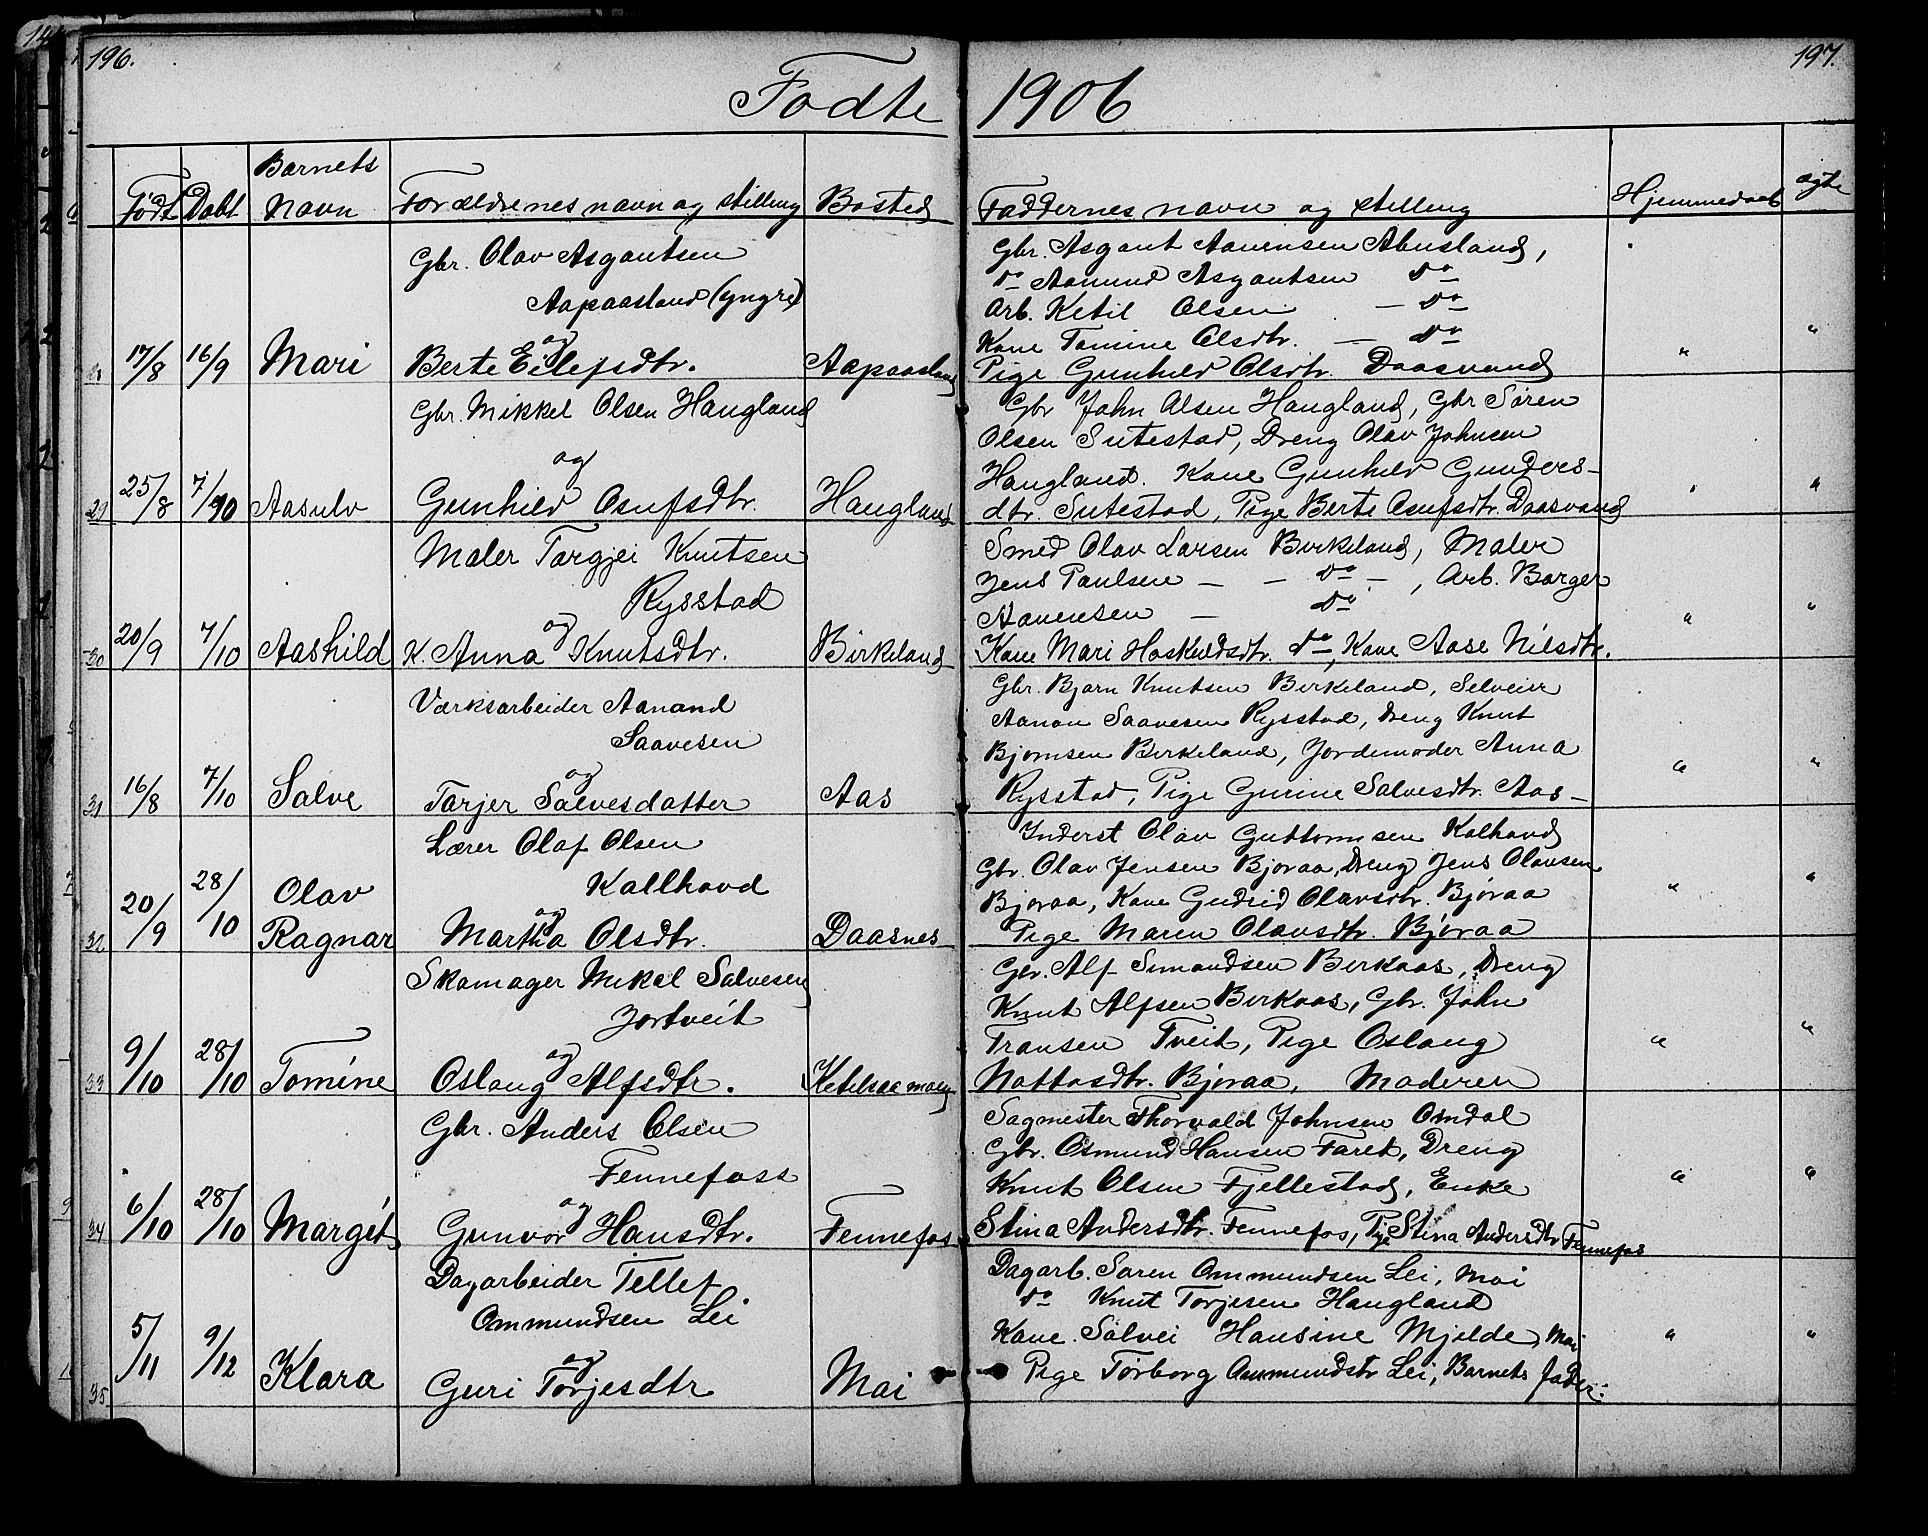 196.
197.
Fødte 1906
No Født Døbt Barnets Navn Forældrenes navn og stilling Bosted Faddernes navn og stilling Hjemmedøbt ægte
Gbr. Olav Asgautsen
Aapaasland (yngre)
og
17/8 16/9 Mari Berte Eilefsdtr. Aapaasland
Gbr. Asgaut Aanensen Abusland,
do Aamund Asgautsen do
Arb. Ketil Olsen — do
Kone Tomine Olsdtr. — do
Pige Gunhild Olsdtr. Daasvand " "
Gbr. Mikkel Olsen Haugland
og
29 25/8 7/10 Aasulv Gunhild Osufsdtr. Haugland
Gbr John Olsen Haugland, Gbr Søren
Olsen Sutestad, Dreng Olav Johnsen
Haugland. Kone Gunhild Gunders-
dtr. Sutestad, Pige Berte Osufsdtr. Daasvand " "
Maler Torgjei Knutsen
Rysstad
og
30 20/9 7/10 Aashild K. Anna Knutsdtr. Birkeland
Smed Olav Larsen Birkeland, Maler
Jens Paulsen — — do — , Arb. Borger
Aanensen — do
Kone Mari Hoskuldsdtr. do, Kone Aase Nilsdtr. " "
Værksarbeider Aanand
Saavesen
og
31 16/8 7/10 Salve Torjer Salvesdatter Aas
Gbr. Bjørn Knutsen Birkeland, Selveier
Aanon Saavesen Rysstad, Dreng Knut
Bjørnsen Birkeland, Jordemoder Anna
Rysstad, Pige Gurine Salvesdtr. Aas — " "
Lærer Olaf Olsen
Kallhovd
og
32 20/9 28/10 Olav Ragnar Martha Olsdtr. Daasnes
Inderst Olav Guttormsen Kalhovd
Gbr. Olav Jensen Bjoraa, Dreng Jens Olavsen
Bjoraa, Kone Gudrid Olavsdtr. Bjøraa
Pige Maren Olavsdtr. Bjøraa " "
Skomager Mikal Salvesen
Jortveit
og
33 9/10 28/10 Tomine Oslaug Alfsdtr. Ketelsaa moen
Gbr. Alf Simondsen Birkaas, Dreng
Knut Alfsen Birkaas, Gbr. John
Fransen Tveit, Pige Oslaug
Nottosdtr. Bjøraa, Moderen " "
Gbr. Anders Olsen
Fennefoss
og
34 6/10 28/10 Margit Gunvor Hansdtr. Fennefos
Sagmester Thorvald Johnsen Omdal
Gbr. Osmund Hansen Faret, Dreng
Knut Olsen Fjellestad, Enke
Stina Andersdtr. Fennefos, Pige Stina Andersdtr Fennefos " "
Dagarbeider Tellef
Ommundsen Lei
og
35 5/11 9/12 Klara Guri Torjesdtr Moi
Dagarb. Søren Ommundsen Lei, Moi
do Knut Torjesen Haugland
Kone. Sølvei Hansine Mjelde, Moi
Pige Torborg Ommundstr Lei, Barnets fader. " "